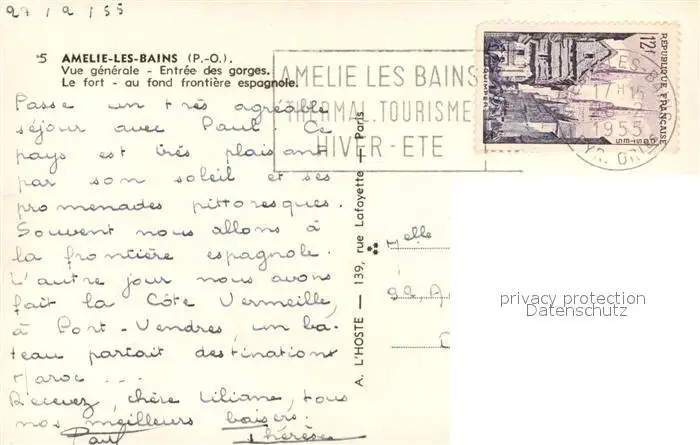 27/2/55
5 AMELIE-LES-BAINS (P.-O.).
Vue générale - Entrée des gorges.
Le fort - au fond frontière espagnole.
Passe un très agréable
séjour avec Paul. Ce
pays est très plaisant
par son soleil et ses
promenades pittoresques.
Souvent nous allons à
la frontière espagnole.
L'autre jour nous avons
fait la Côte Vermeille,
à Port-Vendres, un ba-
teau partait destination
Maroc ...
Recevez, chère Liliane, tous
nos meilleurs baisers.
Paul Thérèse
A. L'HOSTE — 139, rue Lafayette — Paris
AMELIE LES BAINS
THERMAL. TOURISME
HIVER - ETE
12f
REPUBLIQUE FRANÇAISE
POSTES
QUIMPER
17H15
1955
PYR. OR
Melle
22, A
privacy protection
Datenschutz